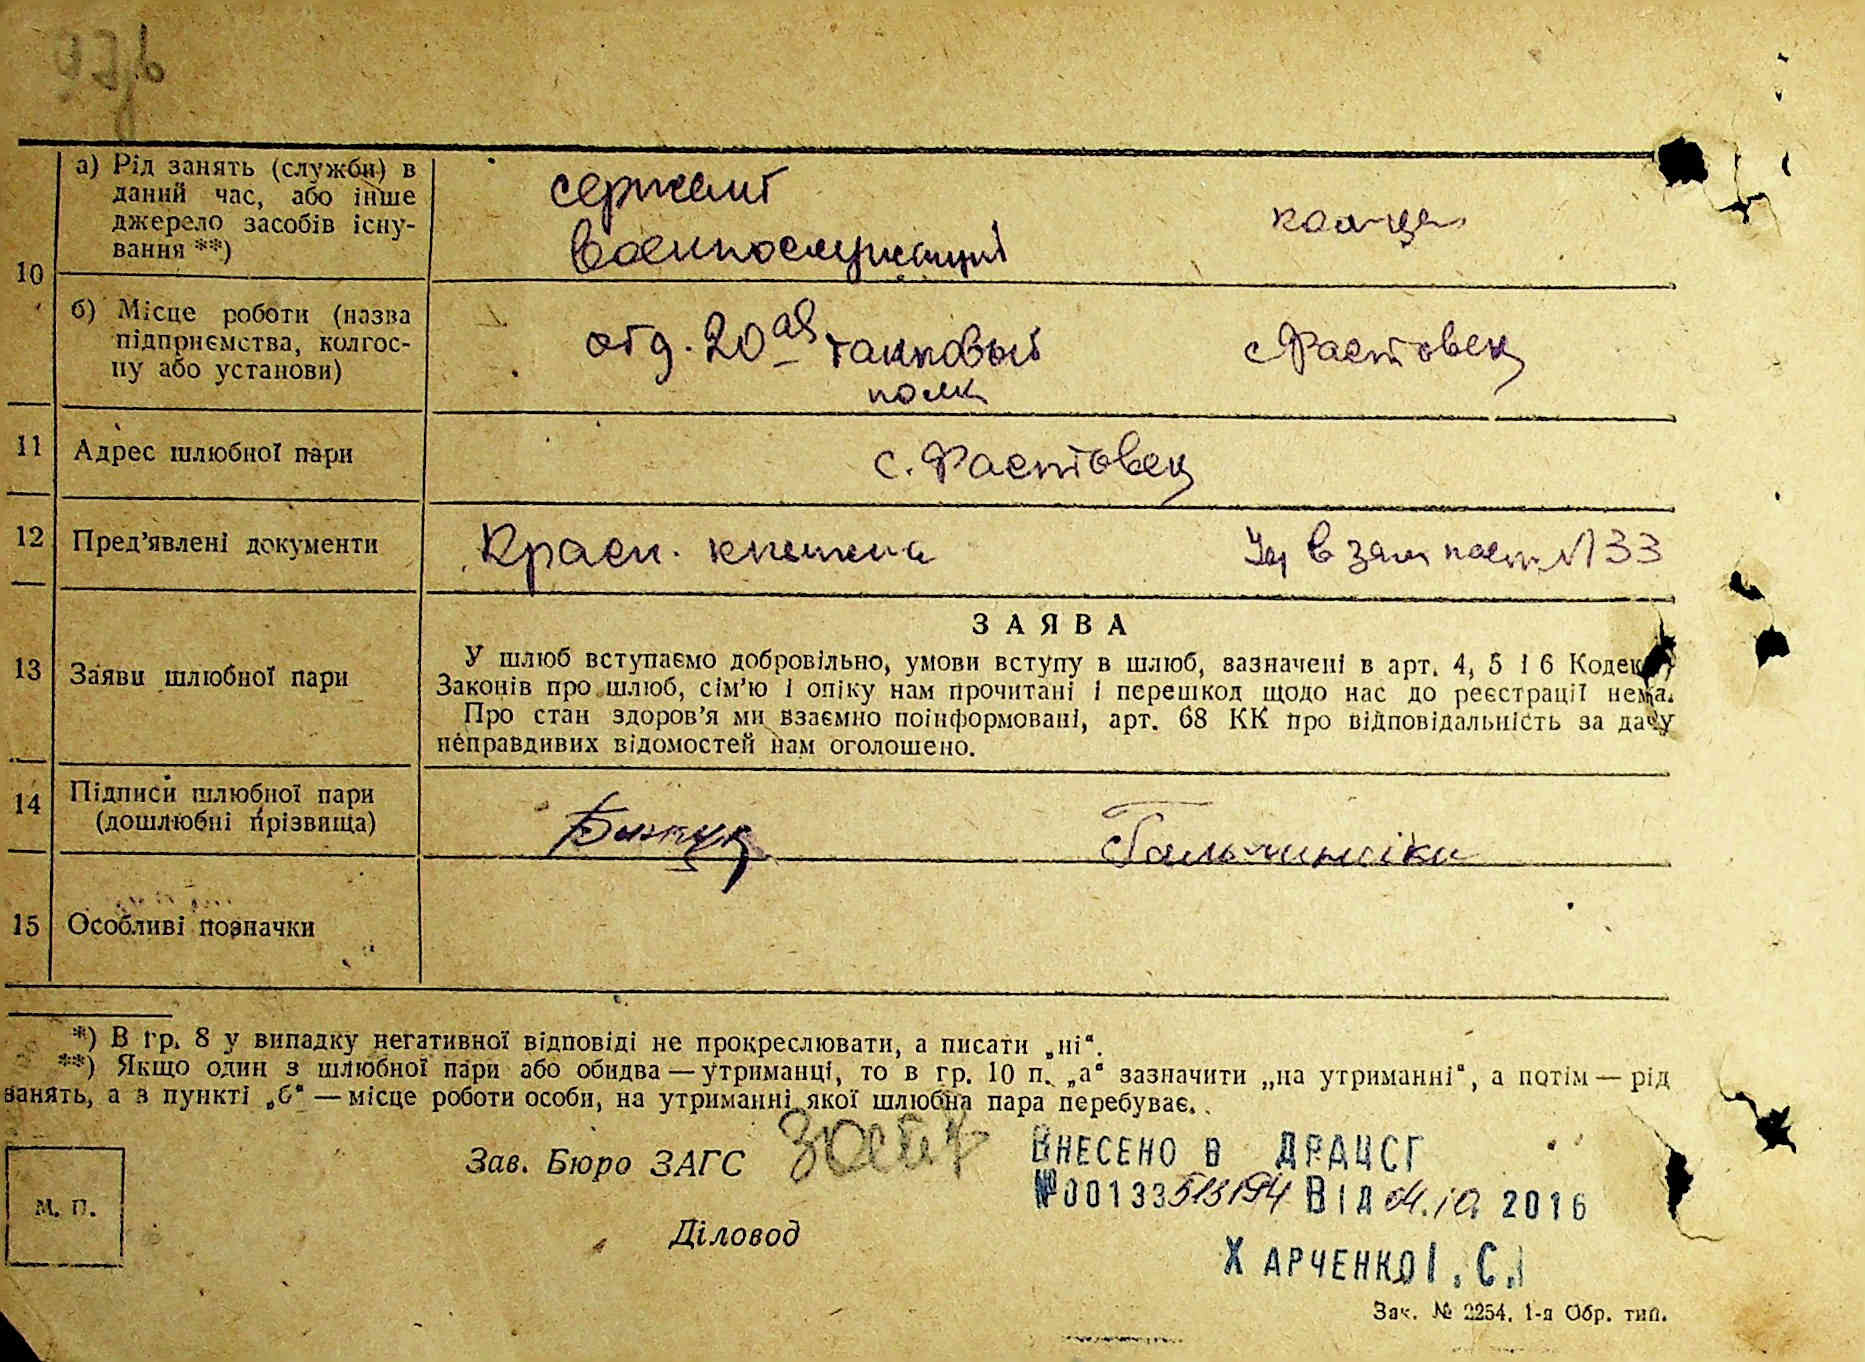 а) Рід занять (служби) в
даний час, або інше
джерело засобів існу-
вання **)
сержант
Военнослужащий
10
б) Місце роботи (назва
підприємства, колгос-
пу або установи)
отд. 20ая танковый
полк
с Фастовец
11 Адрес шлюбної пари
с. Фастовец
12 Пред’явлені документи
Красн. книжка
33
13 Заяви шлюбної пари
ЗАЯВА
У шлюб вступаємо добровільно, умови вступу в шлюб, зазначені в арт. 4, 5 і 6 Кодек
Законів про шлюб, сім’ю і опіку нам прочитані і перешкод щодо нас до реєстрації нема.
Про стан здоров’я ми взаємно поінформовані, арт. 68 КК про відповідальність за дачу
неправдивих відомостей нам оголошено.
14 Підписи шлюбної пари
(дошлюбні прізвища)
Гальчинсіка
15 Особливі позначки
*) В гр. 8 у випадку негативної відповіді не прокреслювати, а писати „ні“.
**) Якщо один з шлюбної пари або обидва — утриманці, то в гр. 10 п. „а“ зазначити „на утриманні“, а потім — рід
занять, а в пункті „б“ — місце роботи особи, на утриманні якої шлюбна пара перебуває.
М. П.
Зав. Бюро ЗАГС
Діловод
ВНЕСЕНО В ДРАЦСГ
№00133513194 ВІД 04.10. 2016
ХАРЧЕНКО І. С.
Зак. № 2254. 1-я Обр. тип.